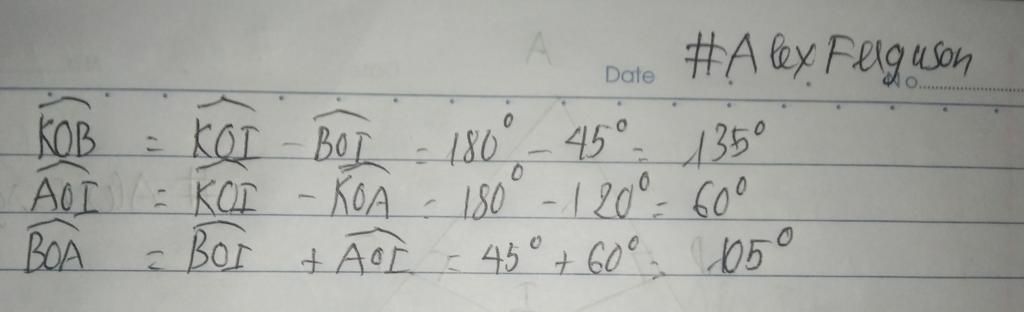 #Alex Ferguson
Date No.
KOB = KOI - BOI = 180° - 45° = 135°
AOI = KOI - KOA = 180° - 120° = 60°
BOA = BOI + AOI = 45° + 60° = 105°